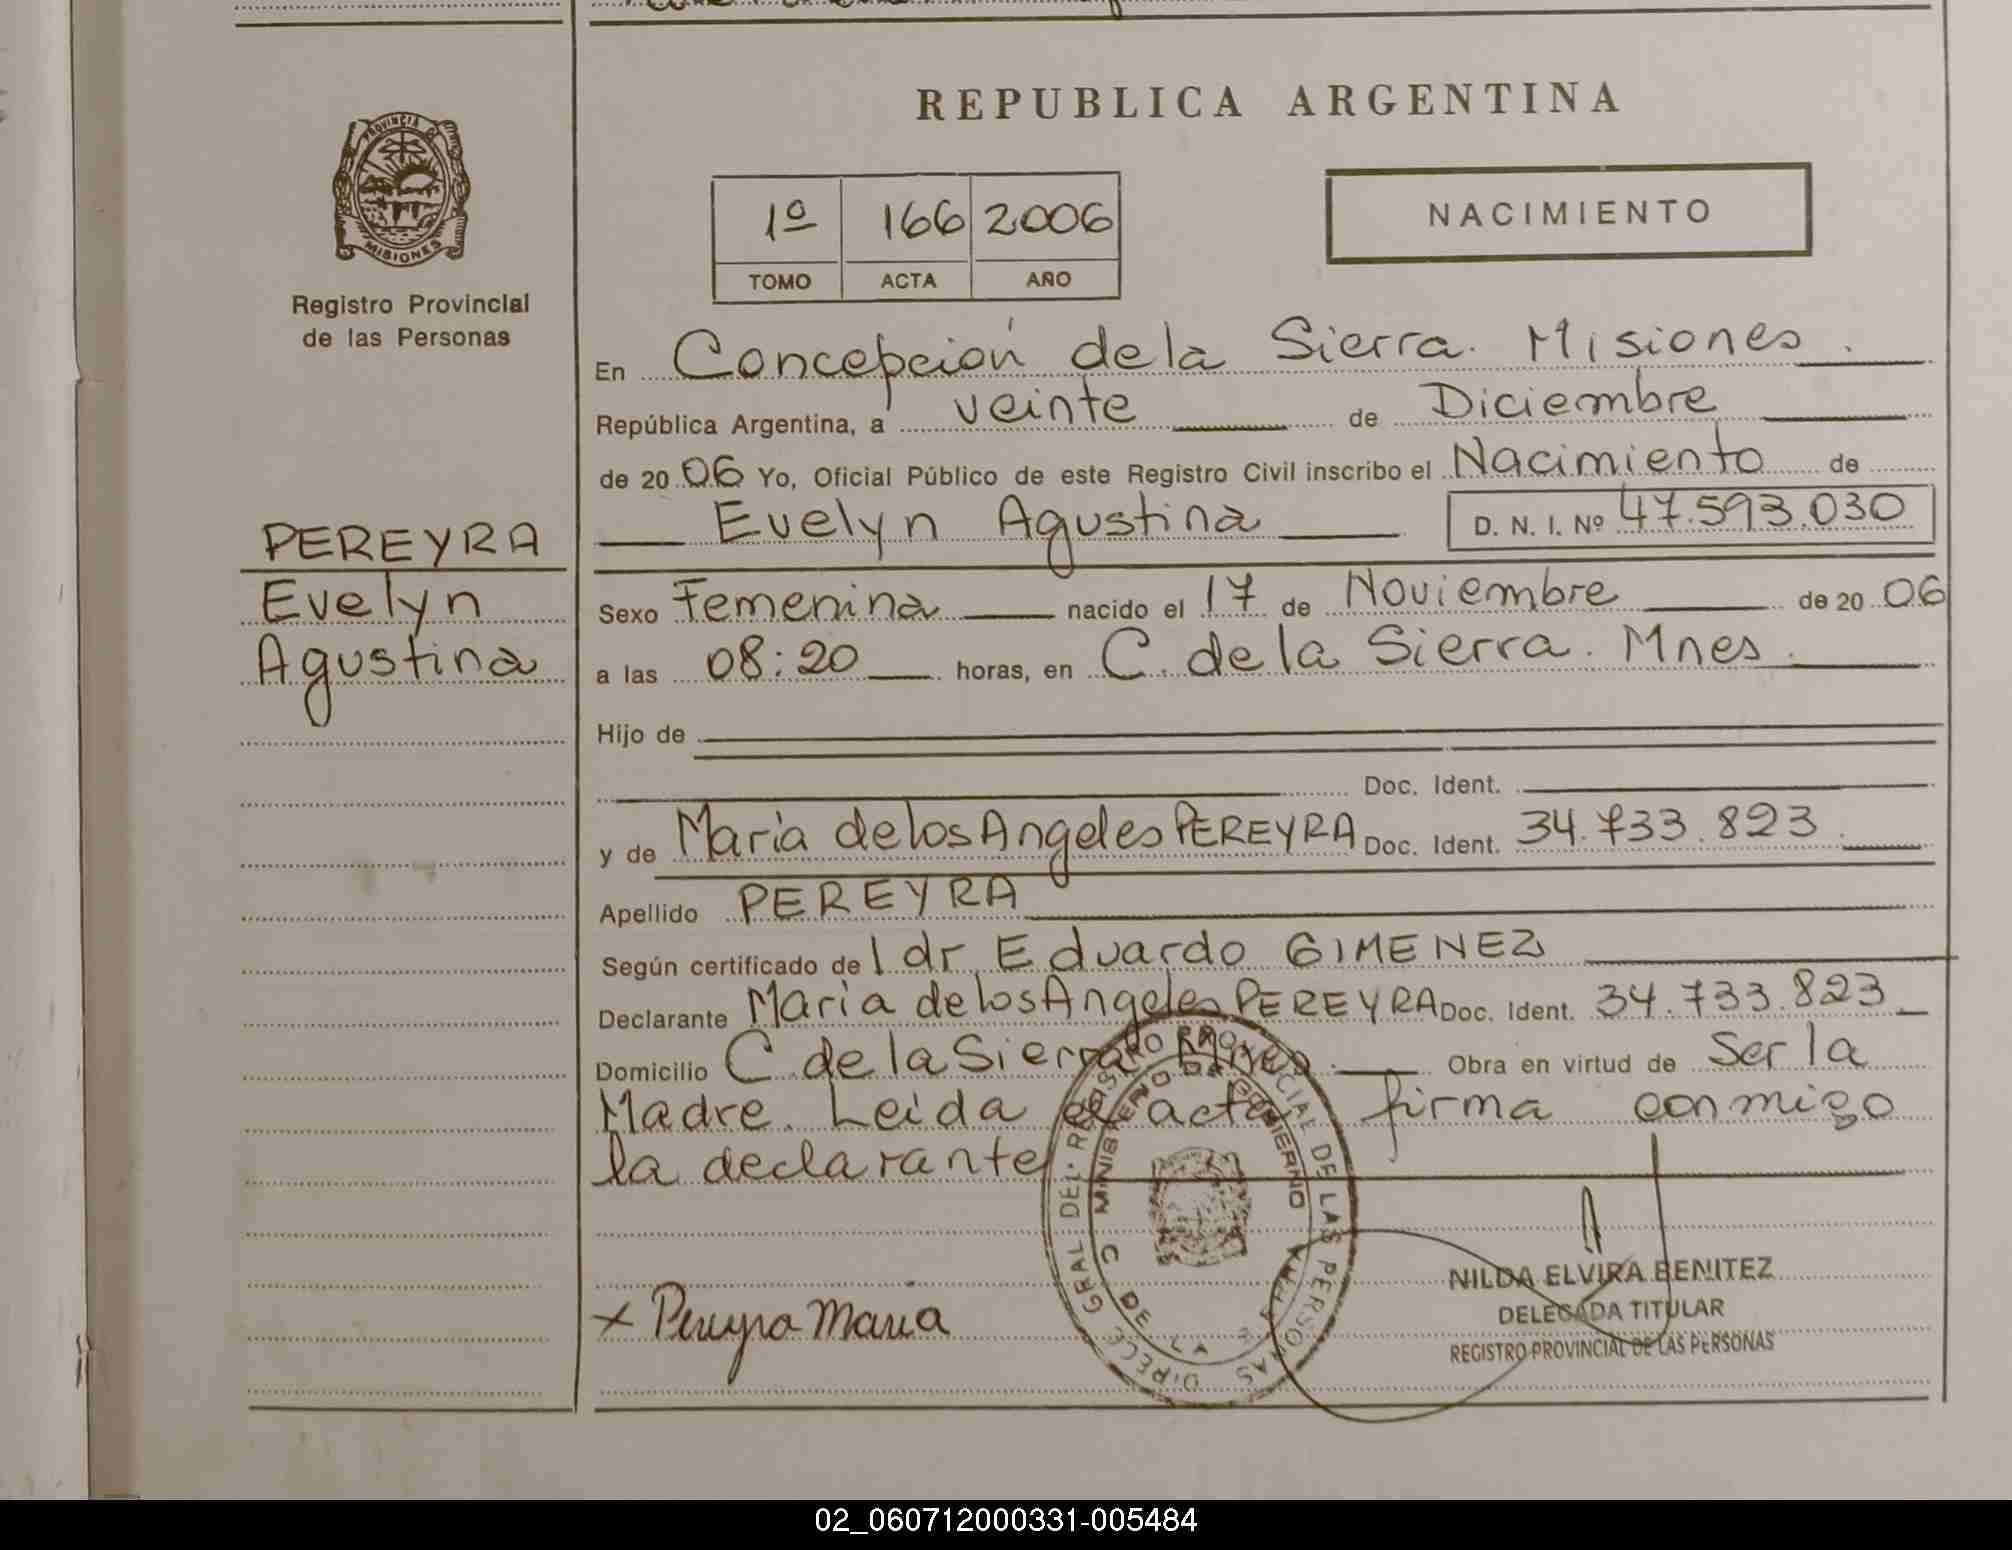 REPUBLICA ARGENTINA
PROVINCIA DE
MISIONES
Registro Provincial
de las Personas
1º 166 2006
TOMO ACTA AÑO
NACIMIENTO
En Concepción de la Sierra. Misiones.
República Argentina, a veinte de Diciembre
de 20 06 Yo, Oficial Público de este Registro Civil inscribo el Nacimiento de
Evelyn Agustina D. N. I. Nº 47.593.030
PEREYRA
Evelyn
Agustina
Sexo Femenina nacido el 17 de Noviembre de 20 06
a las 08:20 horas, en C. de la Sierra. Mnes.
Hijo de
Doc. Ident.
y de Maria de los Angeles PEREYRA Doc. Ident. 34.733.823
Apellido PEREYRA
Según certificado de l dr Eduardo GIMENEZ
Declarante Maria de los Angeles PEREYRA Doc. Ident. 34.733.823
Domicilio C. de la Sierra Mnes. Obra en virtud de Ser la
Madre. Leida el acta, firma conmigo
la declarante
DIRECC. GRAL DEL REGISTRO PROVINCIAL DE LAS PERSONAS
MINISTERIO DE GOBIERNO
C DE LA SIERRA
x Pereyra Maria
NILDA ELVIRA BENITEZ
DELEGADA TITULAR
REGISTRO PROVINCIAL DE LAS PERSONAS
02_060712000331-005484